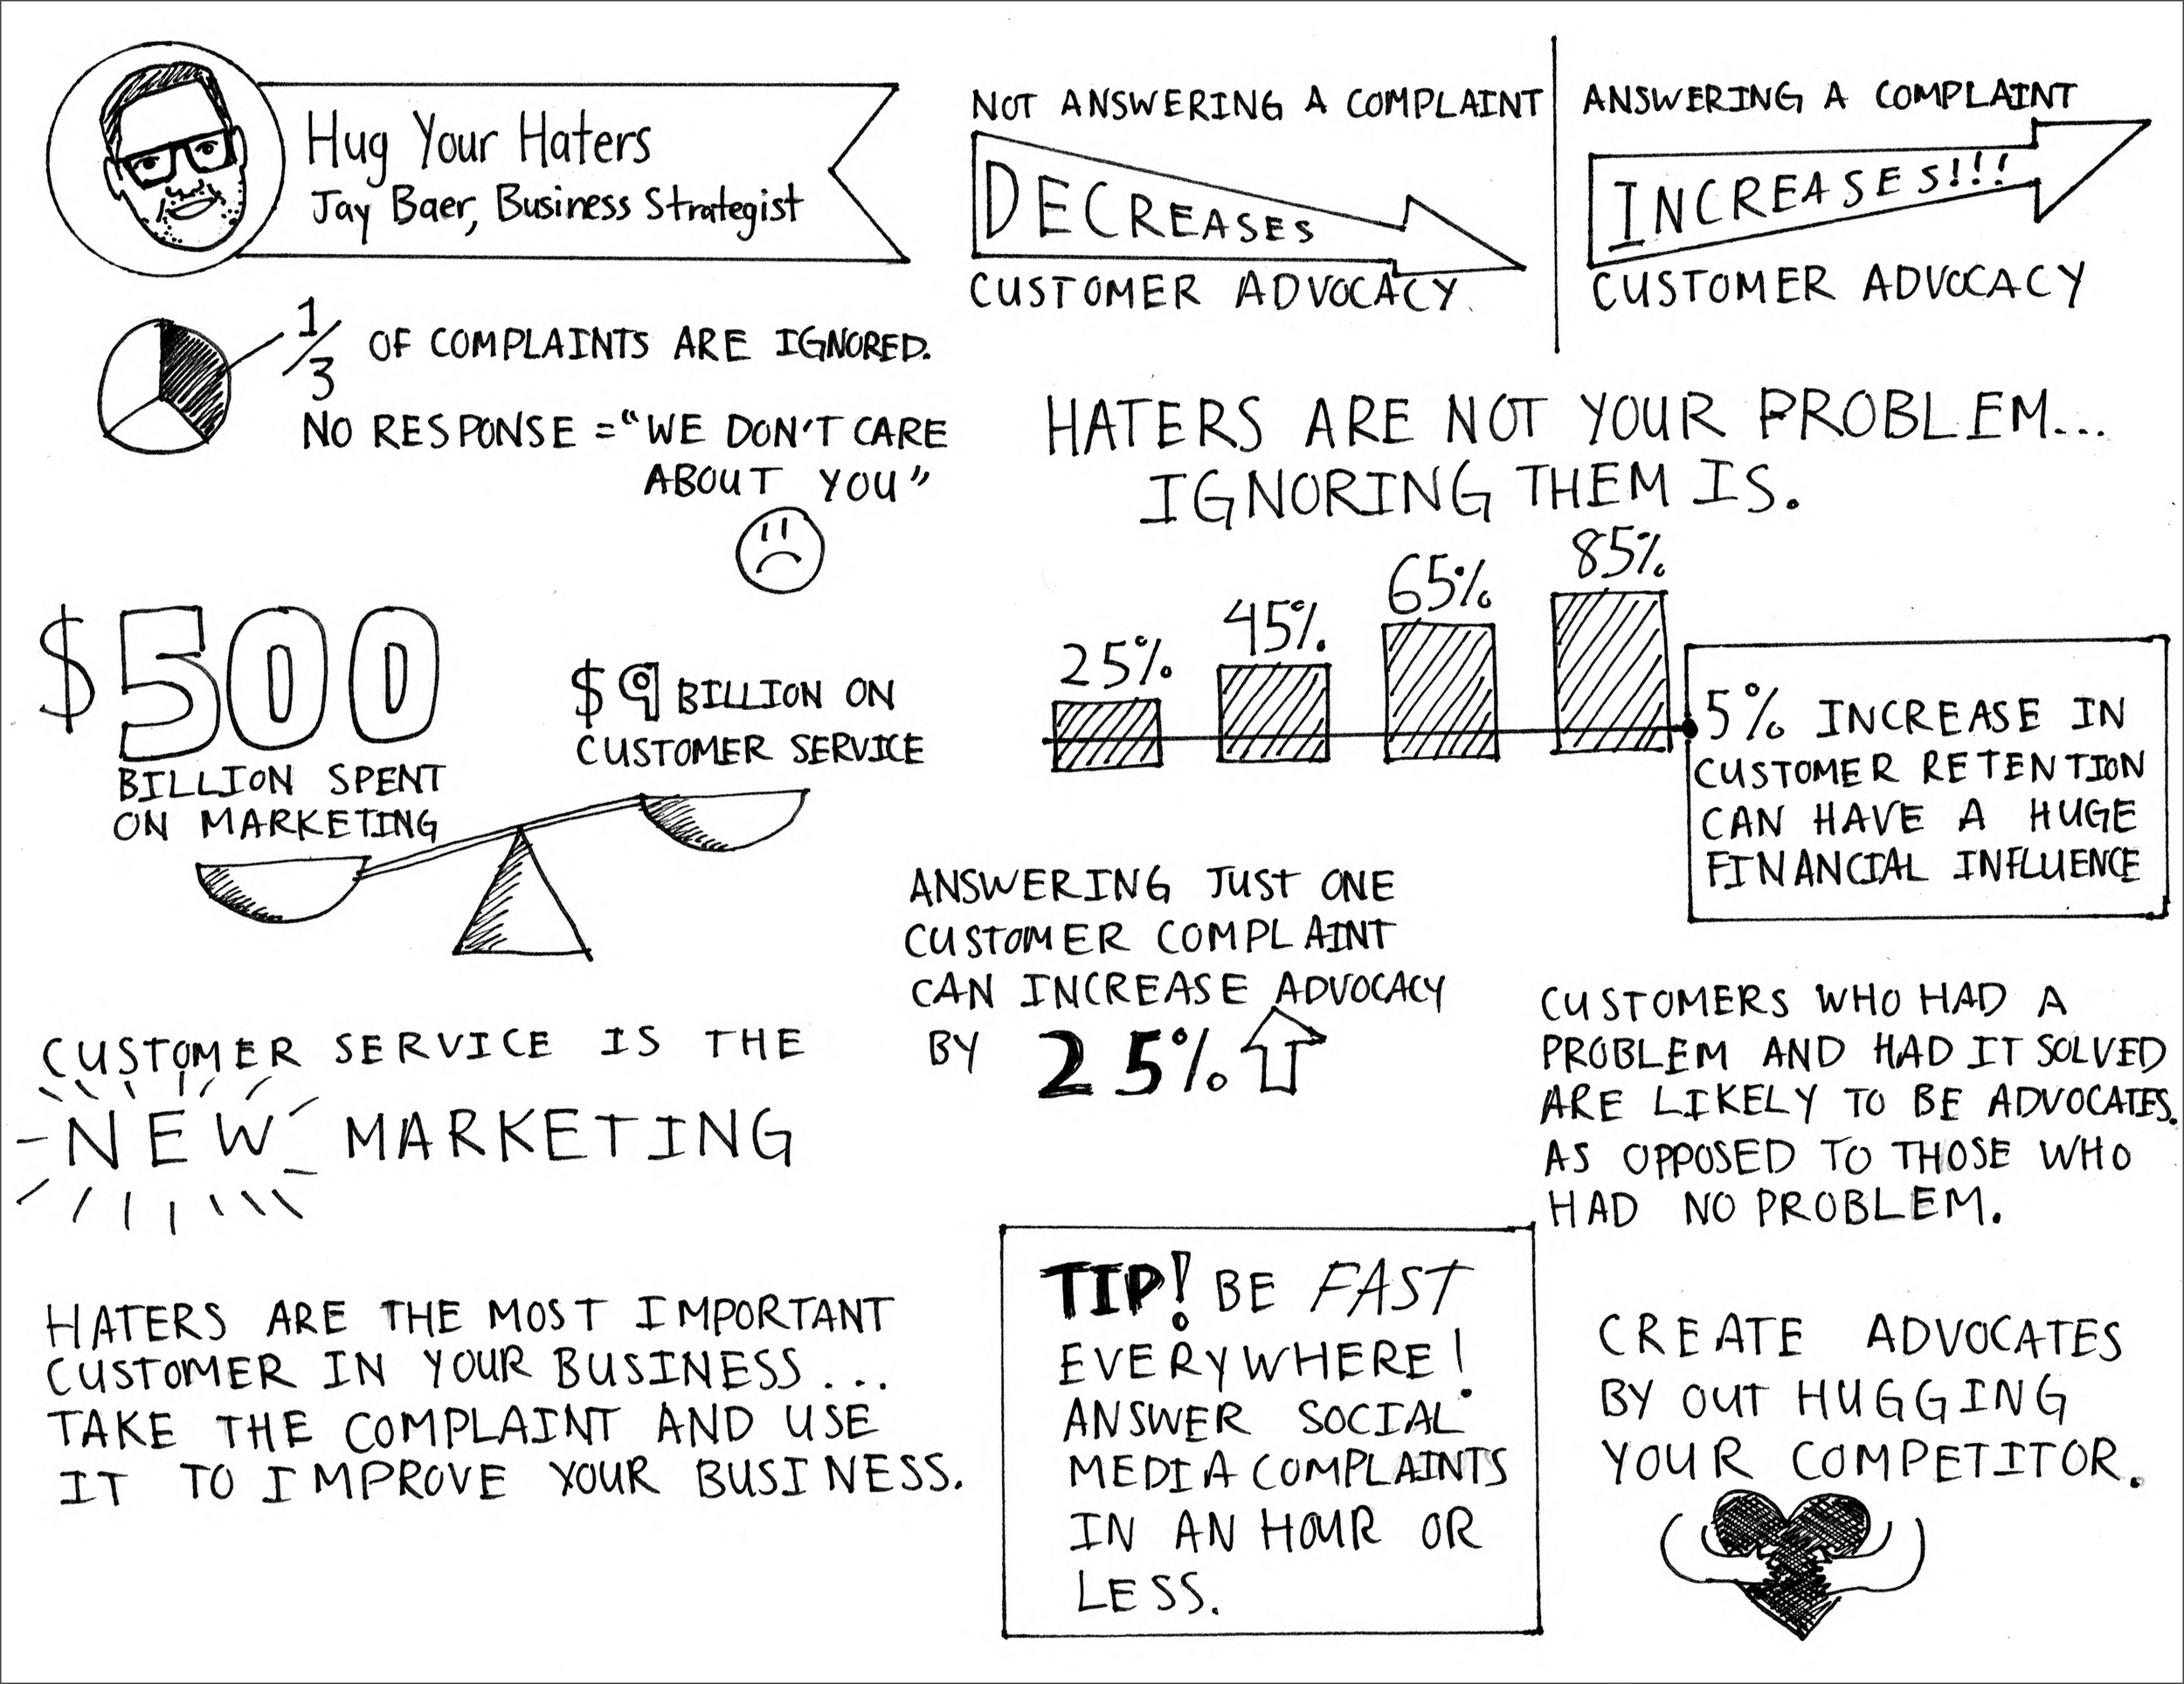 Hug Your Haters
Jay Baer, Business Strategist
1/3 OF COMPLAINTS ARE IGNORED.
NO RESPONSE = "WE DON'T CARE
ABOUT YOU"
NOT ANSWERING A COMPLAINT
DECREASES
CUSTOMER ADVOCACY
ANSWERING A COMPLAINT
INCREASES!!!
CUSTOMER ADVOCACY
HATERS ARE NOT YOUR PROBLEM...
IGNORING THEM IS.
$500
BILLION SPENT
ON MARKETING
$9 BILLION ON
CUSTOMER SERVICE
25% 45% 65% 85%
5% INCREASE IN
CUSTOMER RETENTION
CAN HAVE A HUGE
FINANCIAL INFLUENCE
ANSWERING JUST ONE
CUSTOMER COMPLAINT
CAN INCREASE ADVOCACY
BY 25%
CUSTOMER SERVICE IS THE
NEW MARKETING
CUSTOMERS WHO HAD A
PROBLEM AND HAD IT SOLVED
ARE LIKELY TO BE ADVOCATES.
AS OPPOSED TO THOSE WHO
HAD NO PROBLEM.
HATERS ARE THE MOST IMPORTANT
CUSTOMER IN YOUR BUSINESS...
TAKE THE COMPLAINT AND USE
IT TO IMPROVE YOUR BUSINESS.
TIP! BE FAST
EVERYWHERE!
ANSWER SOCIAL
MEDIA COMPLAINTS
IN AN HOUR OR
LESS.
CREATE ADVOCATES
BY OUT HUGGING
YOUR COMPETITOR.